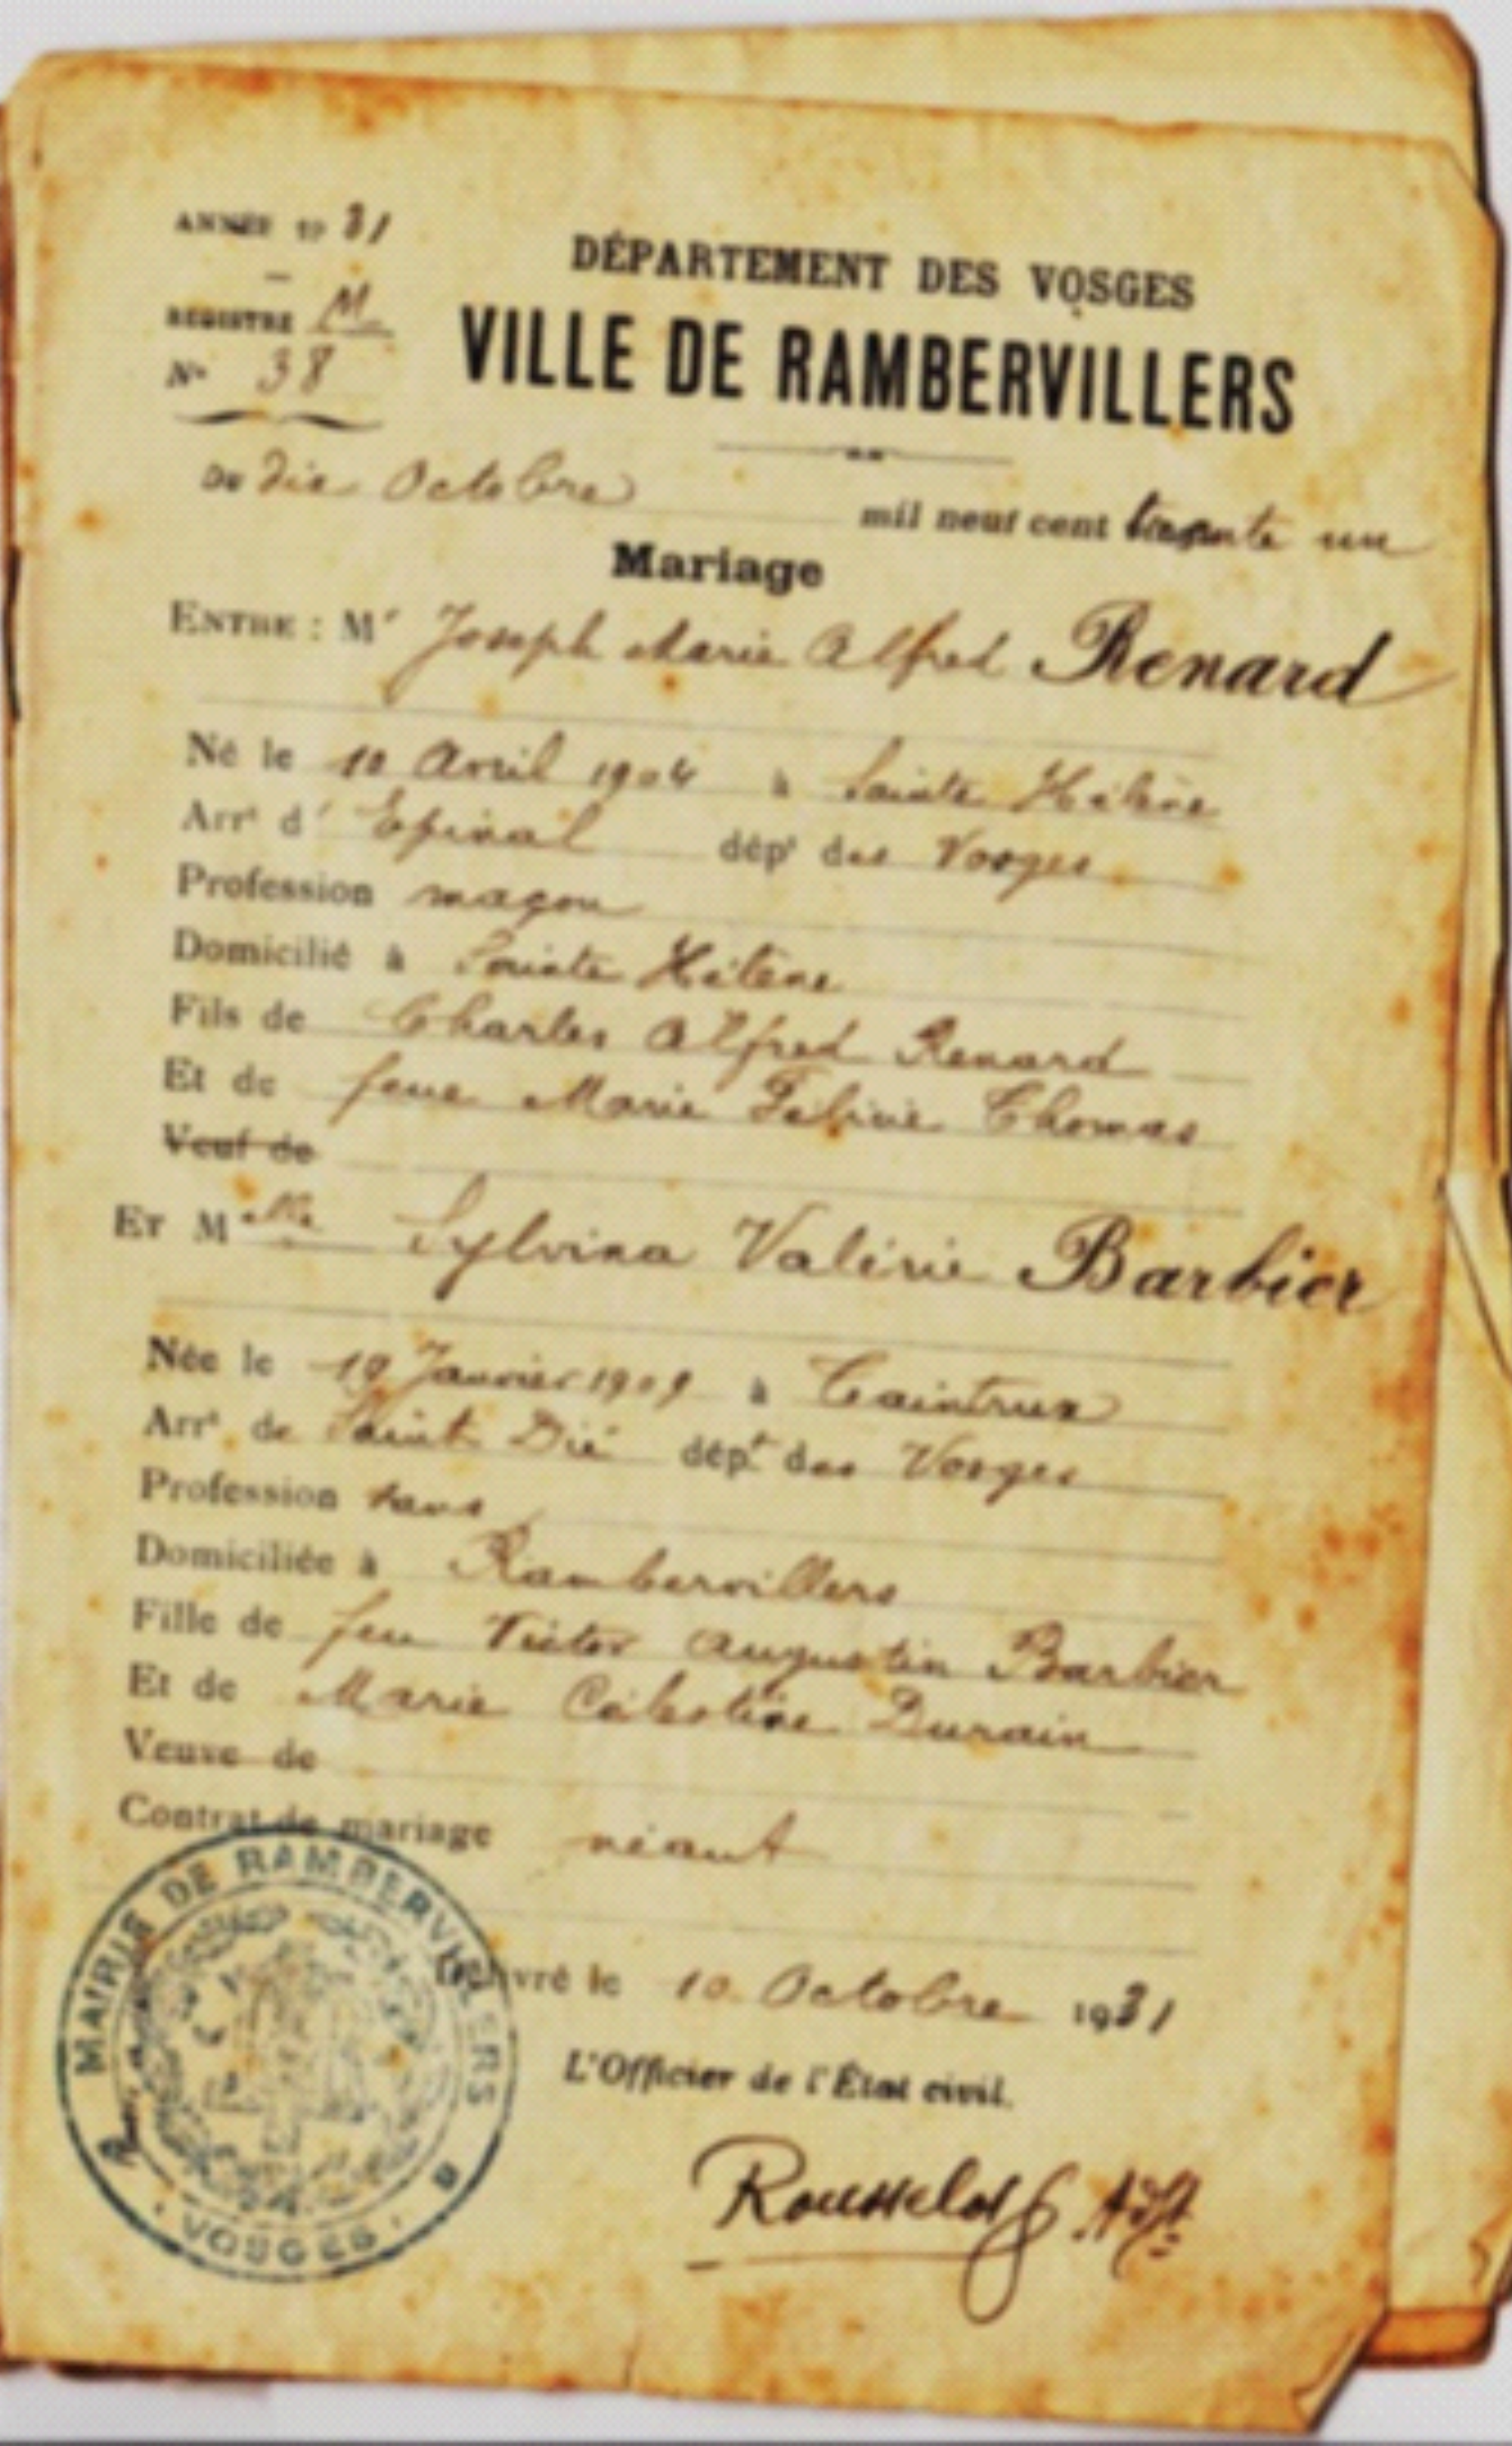 ANNÉE 19 31
DÉPARTEMENT DES VOSGES
REGISTRE M
VILLE DE RAMBERVILLERS
N° 38
DU dix Octobre mil neuf cent trente un
Mariage
ENTRE : Mr Joseph Marie Alfred Renard
Né le 10 Avril 1904 à Sainte Hélène
Arrt d' Epinal dépt des Vosges
Profession maçon
Domicilié à Sainte Hélène
Fils de Charles Alfred Renard
Et de feue Marie Félicie Thomas
Veuf de
ET Melle Sylvina Valérie Barbier
Née le 19 Janvier 1909 à Taintrux
Arrt de Saint Dié dépt des Vosges
Profession sans
Domiciliée à Rambervillers
Fille de feu Victor Augustin Barbier
Et de Marie Célestine Durain
Veuve de
Contrat de mariage néant
Délivré le 10 Octobre 1931
L'Officier de l'État civil.
Rousselot Adjt
MAIRIE DE RAMBERVILLERS
VOSGES